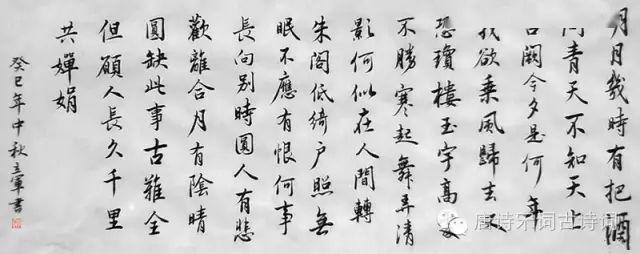 明月幾時有把酒
問青天不知天上
宮闕今夕是何年
我欲乘風歸去又
恐瓊樓玉宇高處
不勝寒起舞弄清
影何似在人間轉
朱閣低綺户照無
眠不應有恨何事
長向別時圓人有悲
歡離合月有陰晴
圓缺此事古難全
但願人長久千里
共嬋娟
癸巳年中秋立軍書
唐诗宋词古诗词